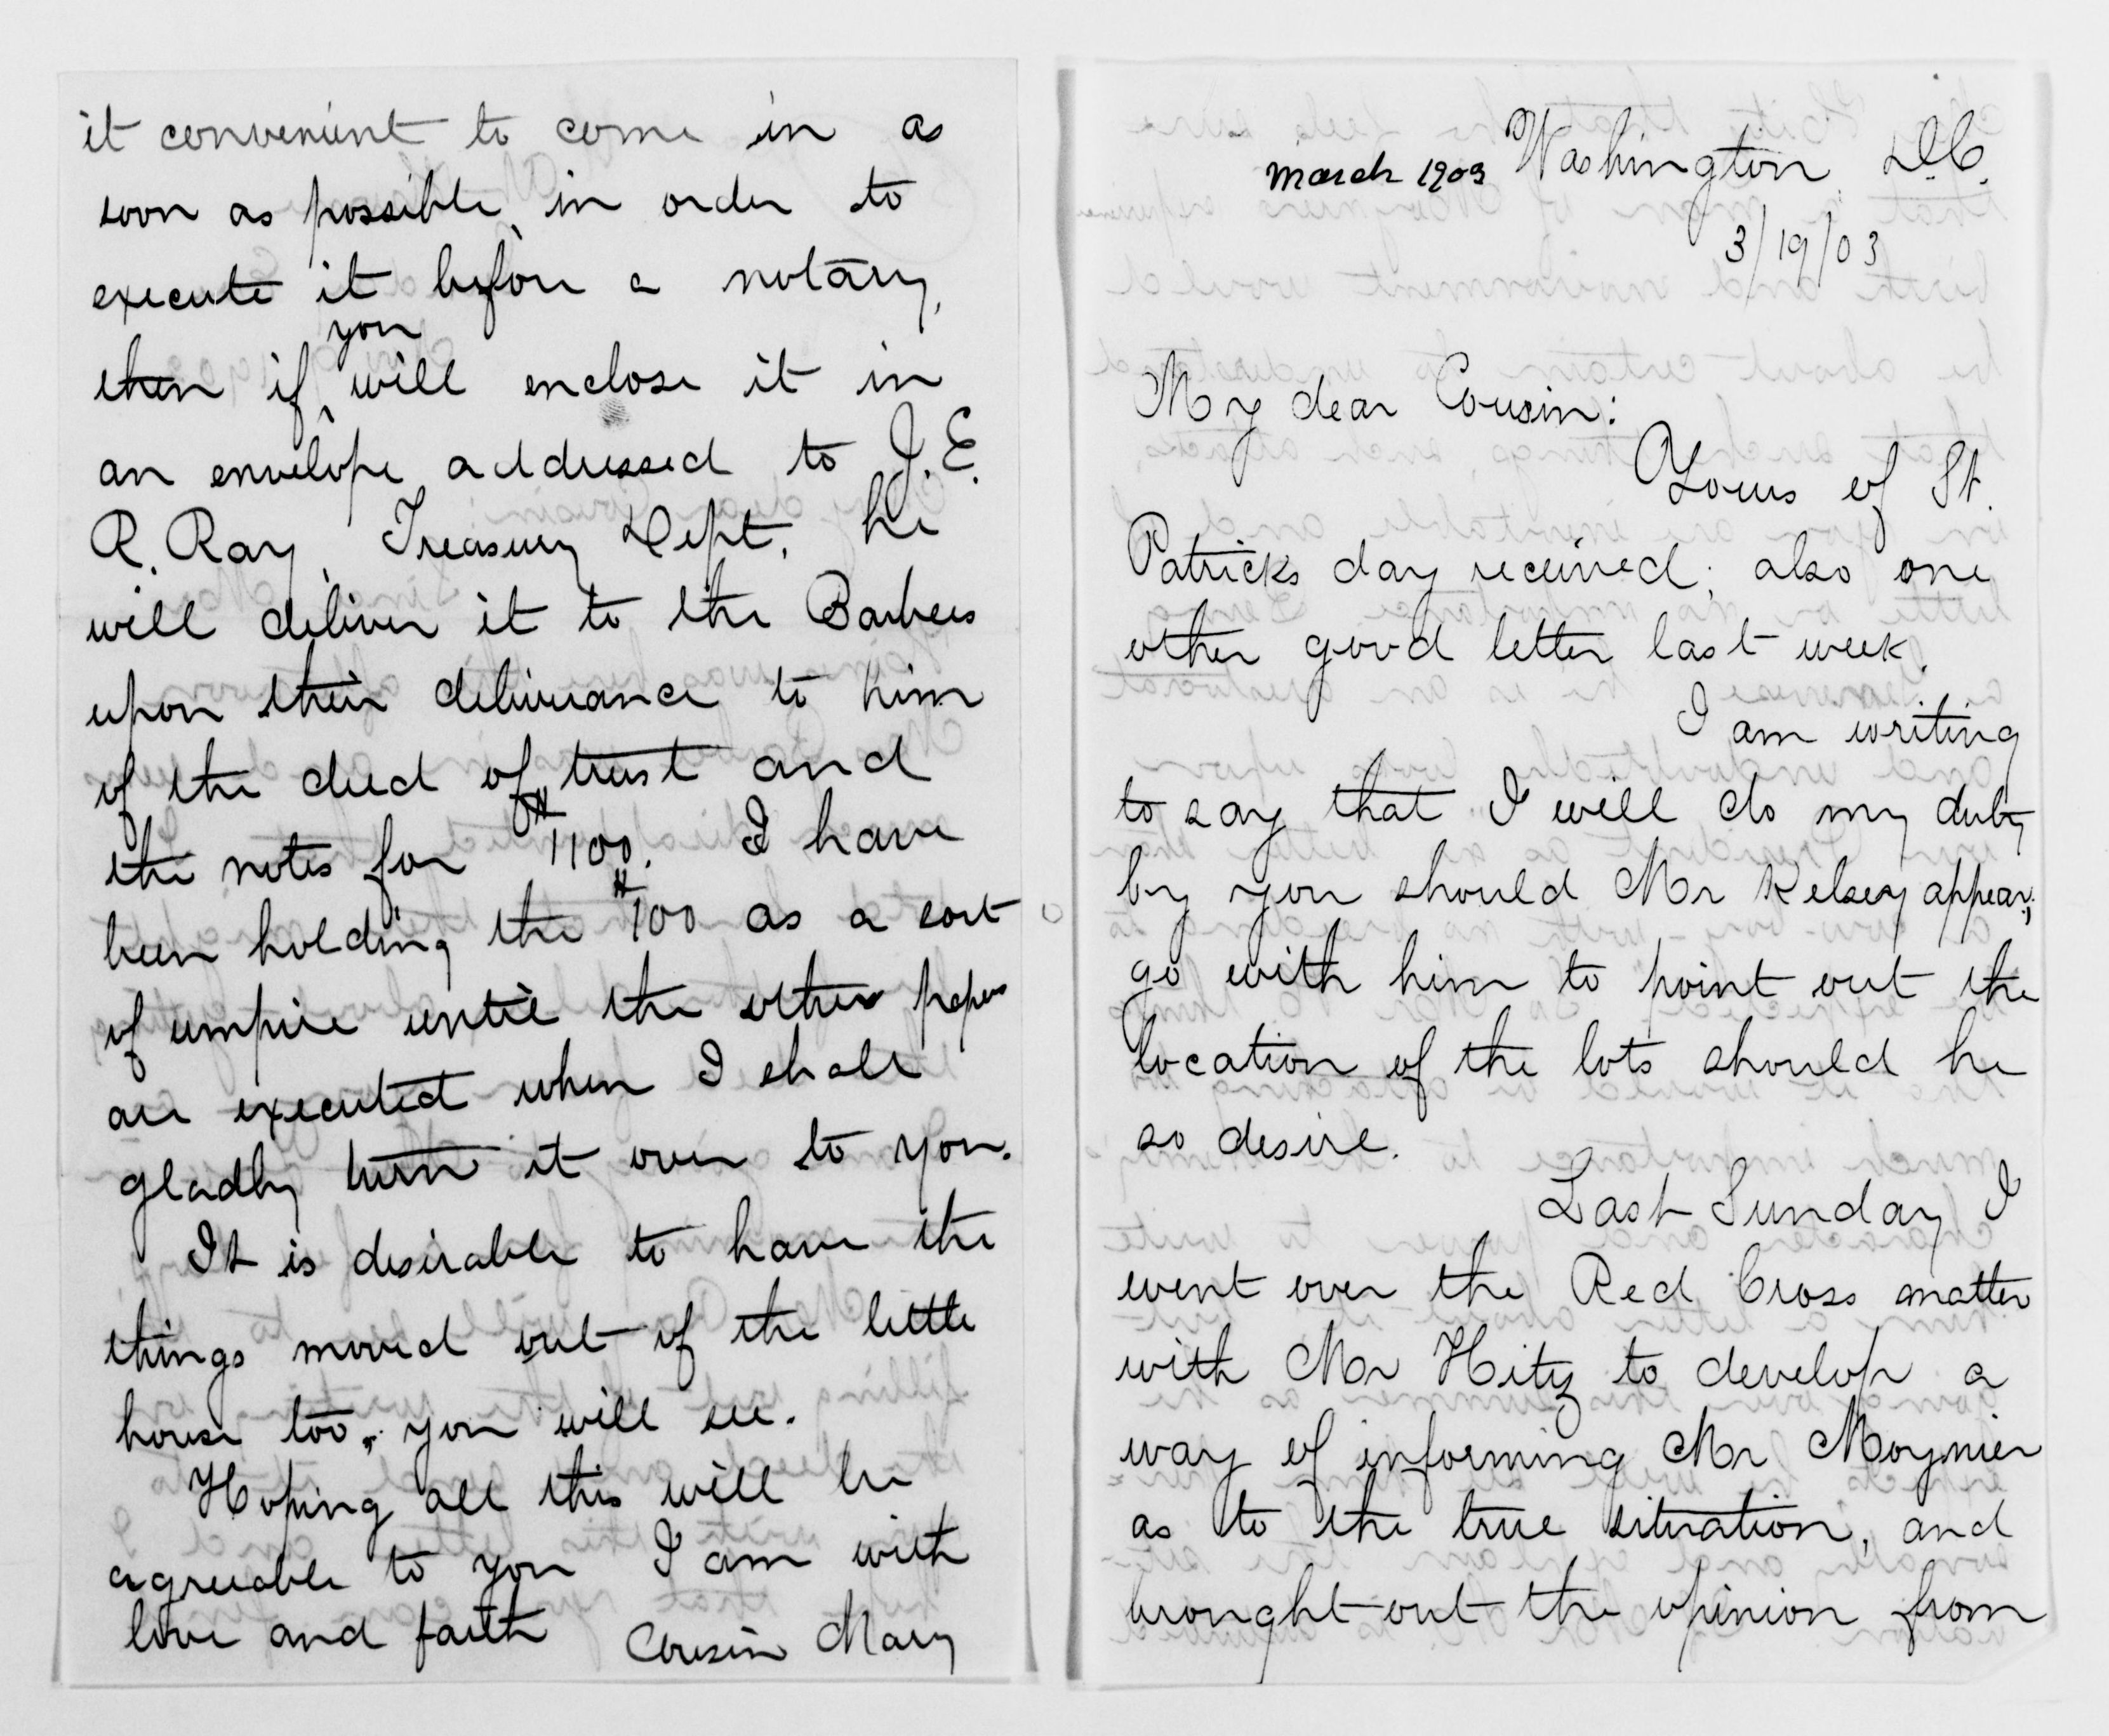 it convenient to come in as
soon as possible, in order to
execute it before a notary,
then if you will enclose it in
an envelope addressed to J. E.
R. Ray, Treasury Dept. he
will deliver it to the Barbers
upon their deliverance to him
of the deed of trust and
the notes for #1100. I have
been holding the #100 as a sort
of umpire until the other papers
are executed when I shall
gladly turn it over to you.
It is desirable to have the
things moved out of the little
house too, you will see.
Hoping all this will be
agreeable to you I am with
love and faith Cousin Mary
march 1903 Washington, D.C.
3/19/03
My dear Cousin:
Yours of St.
Patricks day received; also one
other good letter last week.
I am writing
to say that I will do my duty
by you should Mr Kelsey appear;
go with him to point out the
location of the lots should he
so desire.
Last Sunday I
went over the Red Cross matter
with Mr Hitz to develop a
way of informing Mr Moynier
as to the true situation, and
brought out the opinion from